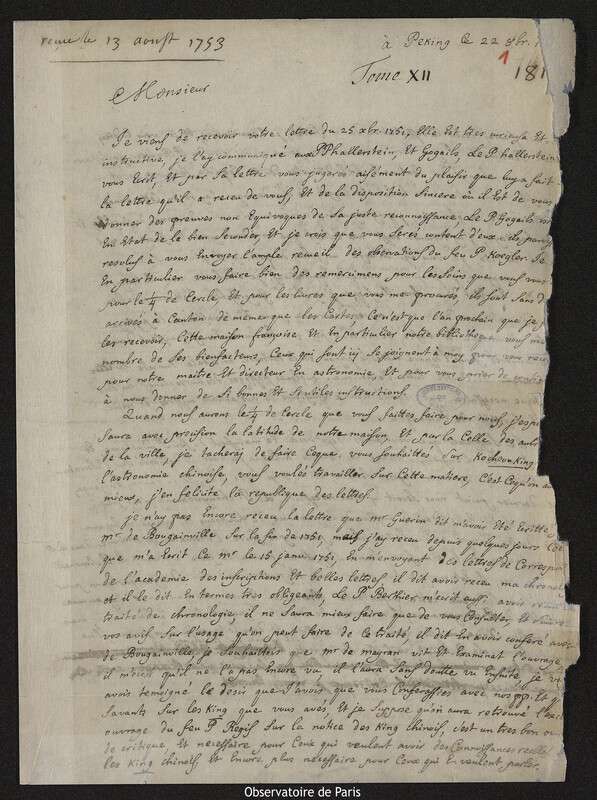 reçue le 13 aoust 1753
à Peking le 22 8br.
Tome XII
1
181
Monsieur
Je viens de recevoir votre lettre du 25 xbr. 1751, Elle Est tres curieuse Et
instructive, je l'ay communiqué aux PP hallerstein, Et Gogails, Le P. hallerstein
vous Ecrit, Et par Sa lettre vous jugerés aisement du plaisir que luy a fait
la lettre qu'il a receu de vous, Et de la disposition Sincere où il Est de vous
donner des preuves non Equivoques de Sa juste reconnoissance. Le P Gogails
En Etat de le bien Seconder, Et je crois que vous Serés content d'eux. ils
resolus à vous Envoyer l'ample recueil des observations du feu P Koegler Je
En particulier vous faire bien des remercimens pour les Soins que vous vous
pour le ¼ de Cercle, Et pour les livres que vous me procurés, ils Sont Sans
arrivés à Canton de même que les Cartes. Ce n'est que l'an prochain que je
les recevoir. Cette maison françoise Et En particulier notre bibliotheque vous
nombre de Ses bienfacteurs, Ceux qui Sont icy Se joignent à moy pour vous
pour notre maitre Et directeur En astronomie, Et pour vous prier de
à nous donner de Si bonnes Et Si utiles instructions.
Quand nous aurons le ¼ de Cercle que vous faittes faire pour nous,
Saura avec precision la latitude de notre maison, Et par la Celle des
de la ville, je tacherai de faire Ceque vous Souhaittés Sur Kocheouking
l'astronomie chinoise, vous voulés travailler Sur Cette matiere, C'est Cequ'on
mieux, j'en felicite la republique des lettres.
je n'ay pas Encore receu la lettre que mr Guerin dit m'avoir Eté Ecritte
mr de Bougainville Sur la fin de 1751, mais j'ay receu depuis quelques jours
que m'a Ecrit Ce mr le 15 janv. 1751, En m'envoyant des lettres de Correspon
de l'academie des inscriptions Et belles lettres, il dit avoir receu ma chronol
et il le dit En termes tres obligeants. Le P. Berthier m'ecrit aussi avoir
traité de chronologie, il ne Saura mieux faire que de vous Consulter, Et
vos avis Sur l'usage qu'on peut faire de Ce traité, il dit En avoir conferé avec
de Bougainville, je Souhaittois que mr de mayran vit Et Examinat l'ouvrage,
qu'il ne l'a pas Encore vu, il l'aura Sans doutte vu Ensuite, je
avois temoigné le desir que j'avois que vous Conferassiés avec nos pp. Et
Savants Sur les King que vous avés, Et je Suppose qu'on aura retrouvé
ouvrage du feu P Regis Sur la notice des King chinois, c'est un tres bon
de critique, et necessaire pour Ceux qui veulent avoir des Connoissances
les King chinois, Et Encore plus necessaire pour Ceux qui En veulent parler.
Observatoire de Paris